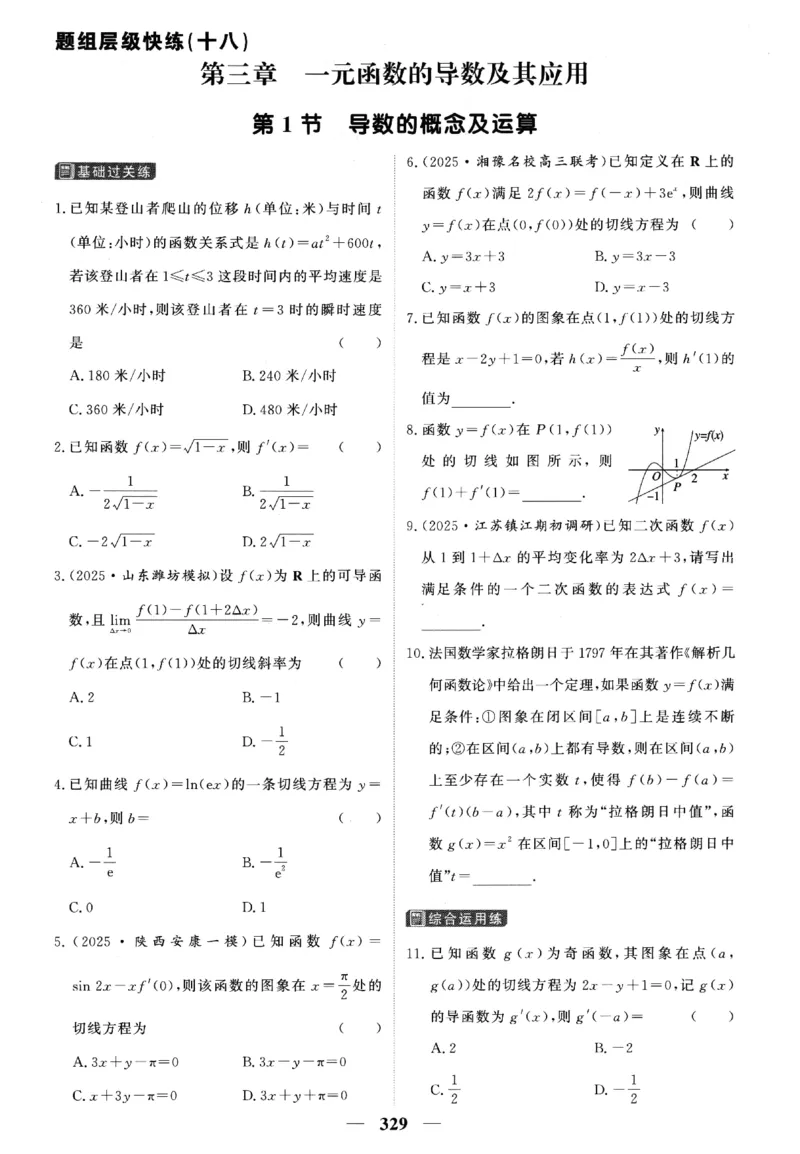 题组层级快练(十八)
第三章 一元函数的导数及其应用
第1节 导数的概念及运算
基础过关练
1.已知某登山者爬山的位移h(单位:米)与时间t
(单位:小时)的函数关系式是h(t)=at²+600t,
若该登山者在1⩽t⩽3这段时间内的平均速度是
360米/小时,则该登山者在t=3时的瞬时速度
是 ( )
A.180米/小时 B.240米/小时
C.360米/小时 D.480米/小时
2.已知函数f(x)=√(1-x),则f′(x)= ( )
A.-1/(2√(1-x)) B.1/(2√(1-x))
C.-2√(1-x) D.2√(1-x)
3.(2025·山东潍坊模拟)设f(x)为R上的可导函
数,且lim(Δx→0) (f(1)-f(1+2Δx))/Δx=-2,则曲线y=
f(x)在点(1,f(1))处的切线斜率为 ( )
A.2 B.-1
C.1 D.-1/2
4.已知曲线f(x)=ln(ex)的一条切线方程为y=
x+b,则b= ( )
A.-1/e B.-1/e²
C.0 D.1
5.(2025·陕西安康一模)已知函数f(x)=
sin 2x-xf′(0),则该函数的图象在x=π/2处的
切线方程为 ( )
A.3x+y-π=0 B.3x-y-π=0
C.x+3y-π=0 D.3x+y+π=0
6.(2025·湘豫名校高三联考)已知定义在R上的
函数f(x)满足2f(x)=f(-x)+3eˣ,则曲线
y=f(x)在点(0,f(0))处的切线方程为 ( )
A.y=3x+3 B.y=3x-3
C.y=x+3 D.y=x-3
7.已知函数f(x)的图象在点(1,f(1))处的切线方
程是x-2y+1=0,若h(x)=f(x)/x,则h′(1)的
值为________.
8.函数y=f(x)在P(1,f(1))
处的切线如图所示,则
f(1)+f′(1)=________.
y y=f(x)
1
O 2 x
P
-1
9.(2025·江苏镇江期初调研)已知二次函数f(x)
从1到1+Δx的平均变化率为2Δx+3,请写出
满足条件的一个二次函数的表达式f(x)=
________.
10.法国数学家拉格朗日于1797年在其著作《解析几
何函数论》中给出一个定理,如果函数y=f(x)满
足条件:①图象在闭区间[a,b]上是连续不断
的;②在区间(a,b)上都有导数,则在区间(a,b)
上至少存在一个实数t,使得f(b)-f(a)=
f′(t)(b-a),其中t称为“拉格朗日中值”,函
数g(x)=x²在区间[-1,0]上的“拉格朗日中
值”t=________.
综合运用练
11.已知函数g(x)为奇函数,其图象在点(a,
g(a))处的切线方程为2x-y+1=0,记g(x)
的导函数为g′(x),则g′(-a)= ( )
A.2 B.-2
C.1/2 D.-1/2
— 329 —